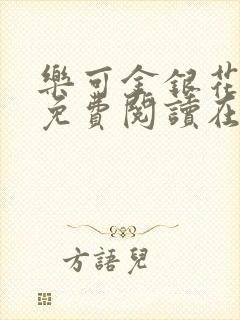 樂可金銀花
免費閱讀在
方語兒